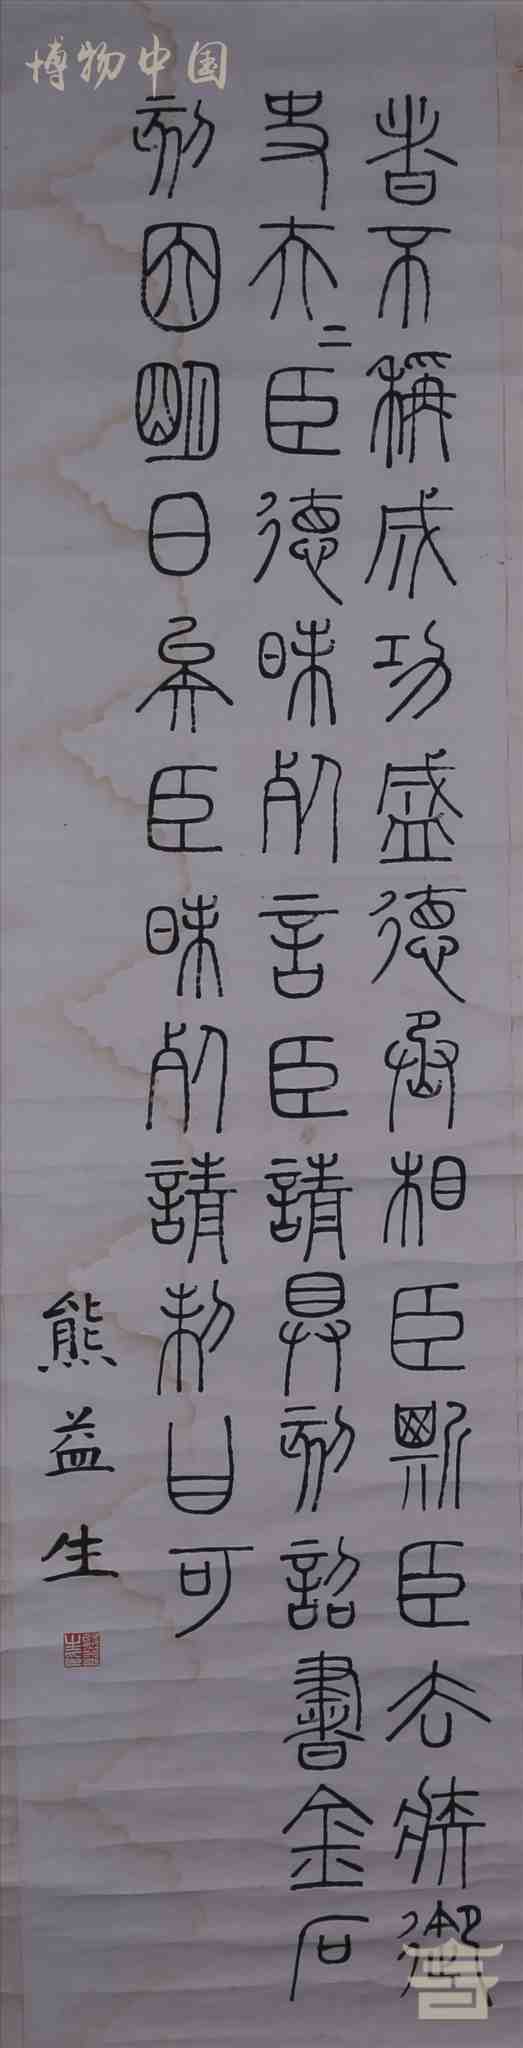 博物中国
者不稱成功盛德丞相臣斯臣去疾御
史夫二臣德昧死言臣請具刻詔書金石
刻因明白矣臣昧死請制曰可
熊益生